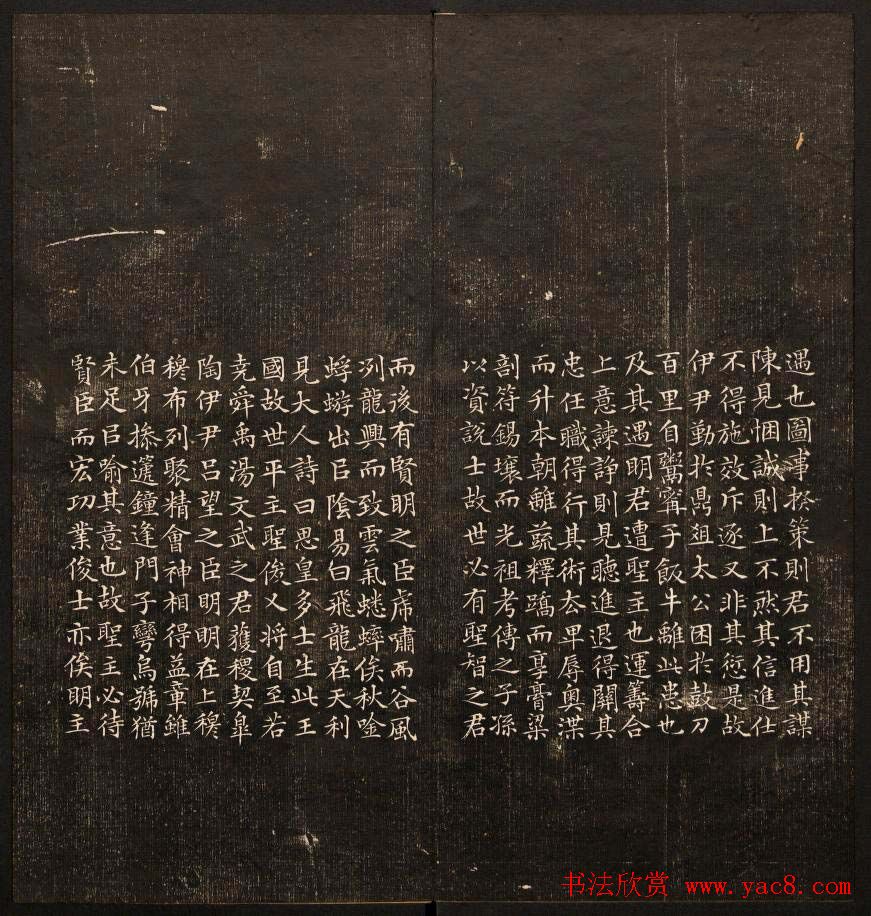 遇也圖事揆策則君不用其謀
陳見悃誠則上不然其信進仕
不得施效斥逐又非其愆是故
伊尹勤於鼎俎太公困於鼓刀
百里自鬻甯子飯牛離此患也
及其遇明君遭聖主也運籌合
上意諫諍則見聽進退得關其
忠任職得行其術去卑辱奧渫
而升本朝離蔬釋蹻而享膏粱
剖符錫壤而光祖考傳之子孫
以資說士故世必有聖智之君
而後有賢明之臣虎嘯而谷風
冽龍興而致雲氣蟋蟀俟秋唫
蜉蝣出㠯陰易曰飛龍在天利
見大人詩曰思皇多士生此王
國故世平主聖俊乂將自至若
堯舜禹湯文武之君獲稷契皐
陶伊尹呂望之臣明明在上穆
穆布列聚精會神相得益章雖
伯牙操遞鐘逢門子彎烏號猶
未足㠯喻其意也故聖主必待
賢臣而宏功業俊士亦俟明主
书法欣赏 www.yac8.com